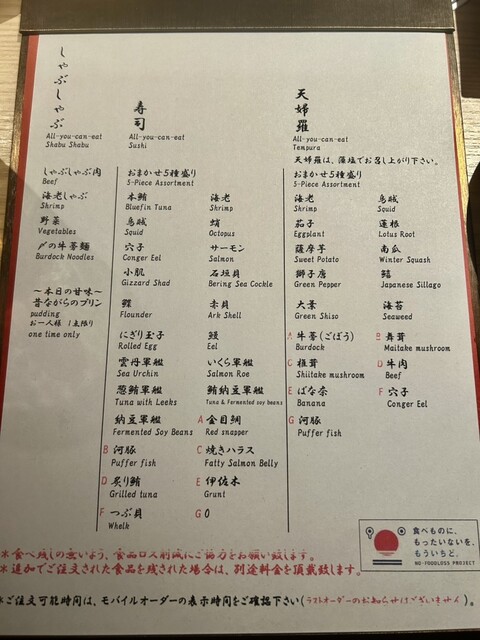 しゃぶしゃぶ
All-you-can-eat
Shabu Shabu
しゃぶしゃぶ肉
Beef
海老しゃぶ
Shrimp
野菜
Vegetables
〆の牛蒡麺
Burdock Noodles
〜本日の甘味〜
昔ながらのプリン
pudding
お一人様 1点限り
one time only
寿司
All-you-can-eat
Sushi
おまかせ5種盛り
5-Piece Assortment
本鮪
Bluefin Tuna
海老
Shrimp
烏賊
Squid
蛸
Octopus
穴子
Conger Eel
サーモン
Salmon
小肌
Gizzard Shad
石垣貝
Bering Sea Cockle
鰈
Flounder
赤貝
Ark Shell
にぎり玉子
Rolled Egg
鰻
Eel
雲丹軍艦
Sea Urchin
いくら軍艦
Salmon Roe
葱鮪軍艦
Tuna with Leeks
鮪納豆軍艦
Tuna & Fermented soy beans
納豆軍艦
Fermented Soy Beans
A 金目鯛
Red snapper
B 河豚
Puffer fish
C 焼きハラス
Fatty Salmon Belly
D 炙り鮪
Grilled tuna
E 伊佐木
Grunt
F つぶ貝
Whelk
G 0
天婦羅
All-you-can-eat
Tempura
天婦羅は、藻塩でお召し上がり下さい。
おまかせ5種盛り
5-Piece Assortment
海老
Shrimp
烏賊
Squid
茄子
Eggplant
蓮根
Lotus Root
薩摩芋
Sweet Potato
南瓜
Winter Squash
獅子唐
Green Pepper
鱚
Japanese Sillago
大葉
Green Shiso
海苔
Seaweed
A 牛蒡(ごぼう)
Burdock
B 舞茸
Maitake mushroom
C 椎茸
Shiitake mushroom
D 牛肉
Beef
E ばな奈
Banana
F 穴子
Conger Eel
G 河豚
Puffer fish
食べものに、
もったいないを、
もういちど。
NO-FOODLOSS PROJECT
※食べ残しの無いよう、食品ロス削減にご協力をお願い致します。
※追加でご注文された食品を残された場合は、別途料金を頂戴致します。
※ご注文可能時間は、モバイルオーダーの表示時間をご確認下さい(ラストオーダーのお知らせはございません)。